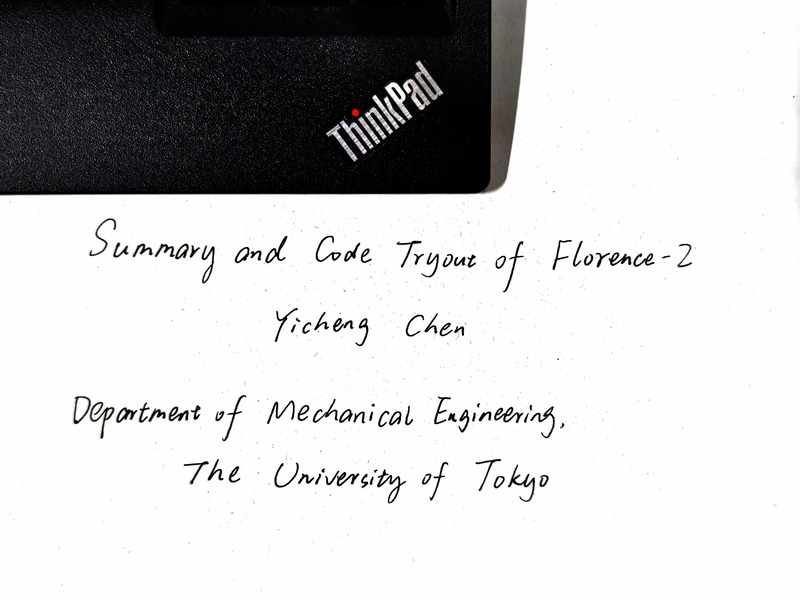 ThinkPad
Summary and Code Tryout of Florence-2
Yicheng Chen
Department of Mechanical Engineering,
The University of Tokyo